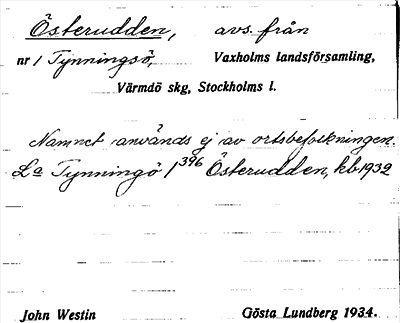 Österudden, avs. från
nr 1 Tynningsö, Vaxholms landsförsamling,
Värmdö skg, Stockholms l.
Namnet används ej av ortsbefolkningen.
La Tynningö 1 396 Österudden, kb. 1932
John Westin Gösta Lundberg 1934.